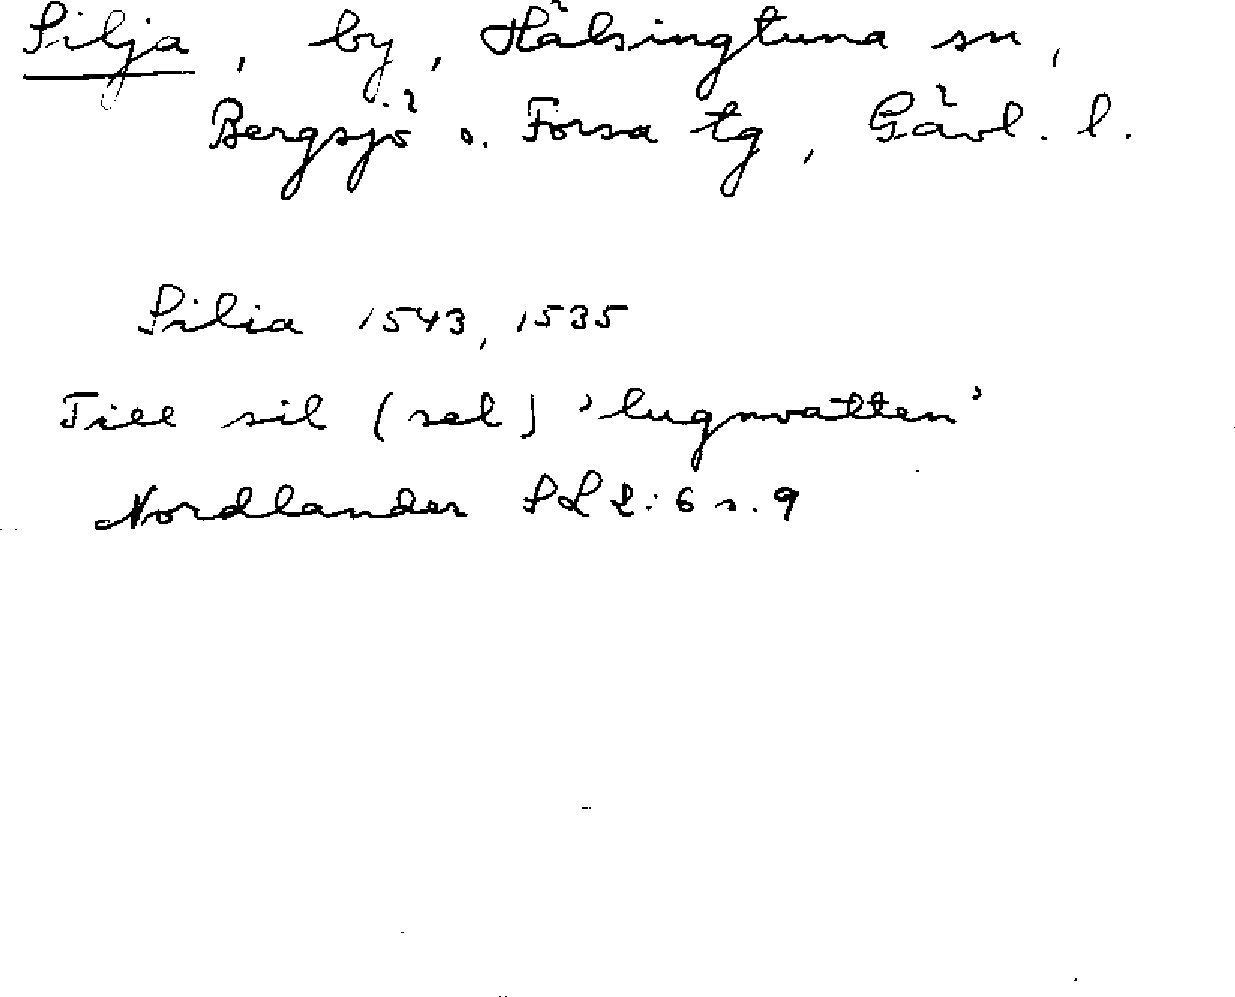 Silja, by, Hälsingtuna sn,
Bergsjö o. Forsa tg, Gävl. l.
Silia 1543, 1535
Till sil (sel) 'lugnvatten'
Nordlander SL 2:6 s. 9